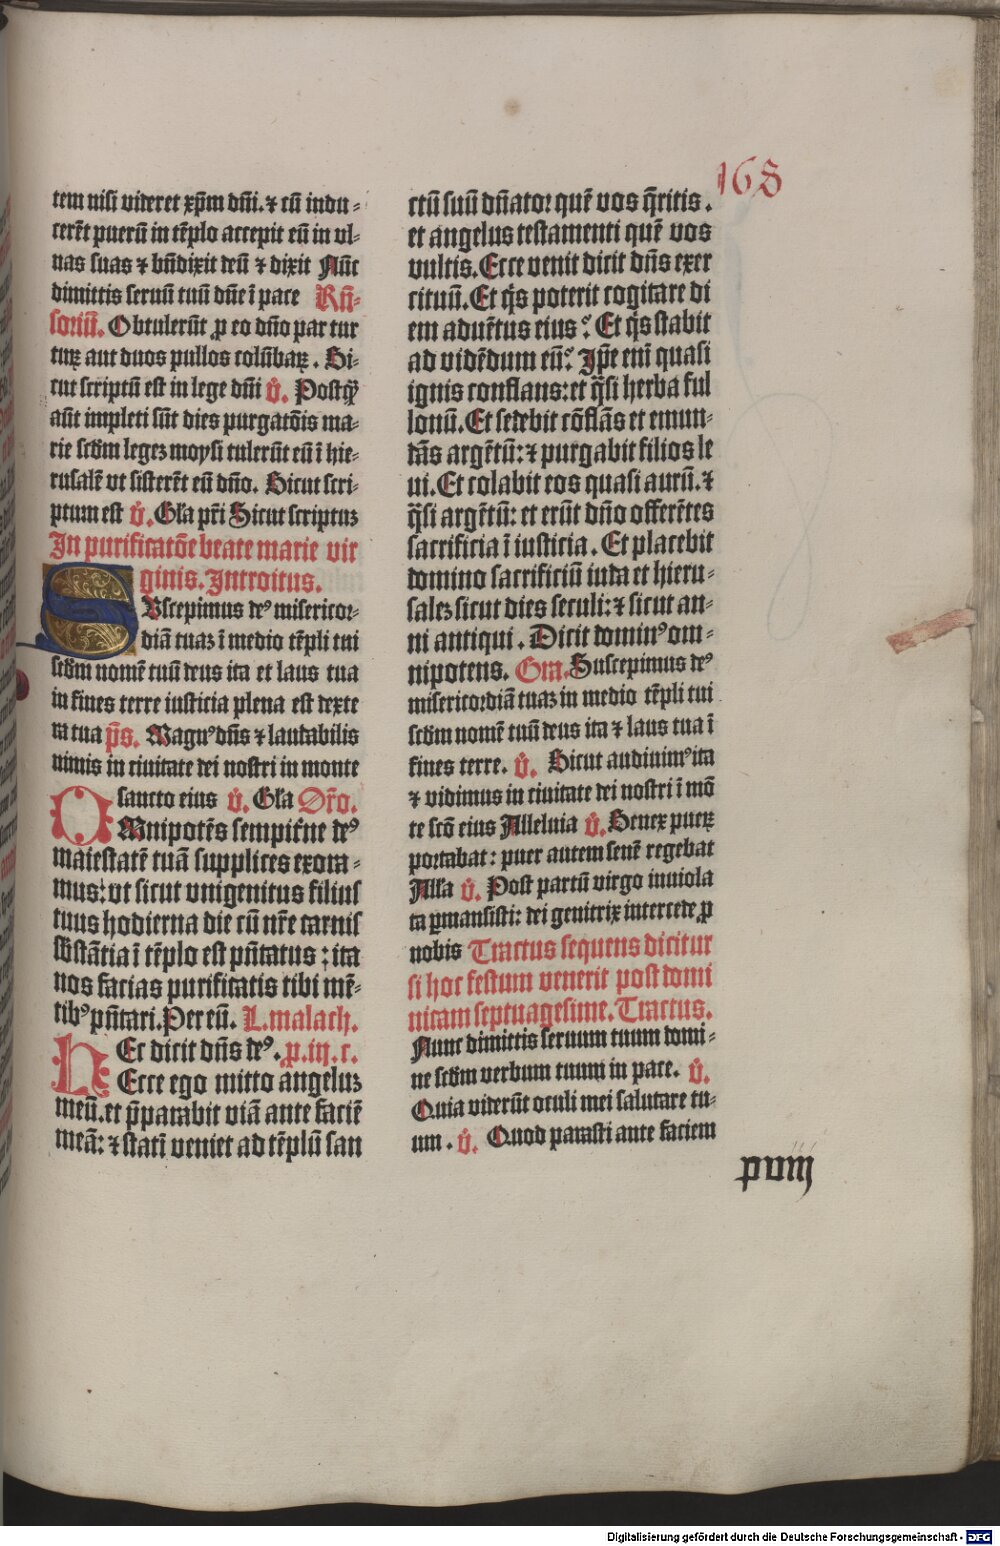 168
tem nisi videret xp̄m dn̄i. ⁊ cū indu⸗
cerēt puerū in tēplo accepit eū in vl⸗
nas suas ⁊ bn̄dixit deū ⁊ dixit Nūc
dimittis seruū tuū dn̄e ī pace Rn̄⸗
soriū. Obtulerūt ꝓ eo dn̄o par tur
turꝫ aut duos pullos colūbaꝝ. Si⸗
cut scriptū est in lege dn̄i v̄. Postꝙ̄
aūt impleti sūt dies purgatōis ma⸗
rie scd̄m legeꝫ moysi tulerūt eū ī hie⸗
rusalē vt sisterēt eū dn̄o. Sicut scri⸗
ptum est v̄. Gl̄a pr̄i Sicut scriptuꝫ
In purificatōe beate marie vir
ginis. Introitus.
SVscepimus de⁹ misericor⸗
diā tuaꝫ ī medio tēpli tui
scd̄m nomē tuū deus ita et laus tua
in fines terre iusticia plena est dexte
ra tua p̄s. Magn⁹ dn̄s ⁊ laudabilis
nimis in ciuitate dei nostri in monte
sancto eius v̄. Gl̄a Or̄o.
OMnipotēs sempit̄ne de⁹
maiestatē tuā supplices exora⸗
mus: vt sicut vnigenitus filius
tuus hodierna die cū nr̄e carnis
sb̄stātia ī tēplo est pn̄tatus : ita
nos facias purificatis tibi mē⸗
tib⁹ pn̄tari. Per eū. L. malach.
HEc dicit dn̄s de⁹. p. iij. c.
Ecce ego mitto angeluꝫ
meū. et p̄parabit viā ante faciē
meā: ⁊ statī veniet ad tēplū san
ctū suū dn̄ator quē vos q̄ritis.
et angelus testamenti quē vos
vultis. Ecce venit dicit dn̄s exer
cituū. Et q̄s poterit cogitare di
em aduētus eius? Et q̄s stabit
ad vidēdum eū? Ip̄e eni quasi
ignis conflans: et q̄si herba ful
lonū. Et sedebit cōflās et emun⸗
dās argētū: ⁊ purgabit filios le
ui. Et colabit eos quasi aurū. ⁊
q̄si argētū: et erūt dn̄o offerētes
sacrificia ī iusticia. Et placebit
domino sacrificiū iuda et hieru⸗
saleꝫ sicut dies seculi: ⁊ sicut an⸗
ni antiqui. Dicit domin⁹ om⸗
nipotens. Gra. Suscepimus de⁹
misericordiā tuaꝫ in medio tēpli tui
scd̄m nomē tuū deus ita ⁊ laus tua ī
fines terre. v̄. Sicut audiuim⁹ ita
⁊ vidimus in ciuitate dei nostri ī mō
te scō eius Alleluia v̄. Senex pueꝝ
portabat: puer autem senē regebat
All'a v̄. Post partū virgo inuiola
ta ꝑmansisti: dei genitrix intercede ꝓ
nobis Tractus sequens dicitur
si hoc festum venerit post domi
nicam septuagesime. Tractus.
Nunc dimittis seruum tuum domi⸗
ne scd̄m verbum tuum in pace. v̄.
Quia viderūt oculi mei salutare tu⸗
um. v̄. Quod parasti ante faciem
pviij
Digitalisierung gefördert durch die Deutsche Forschungsgemeinschaft - DFG